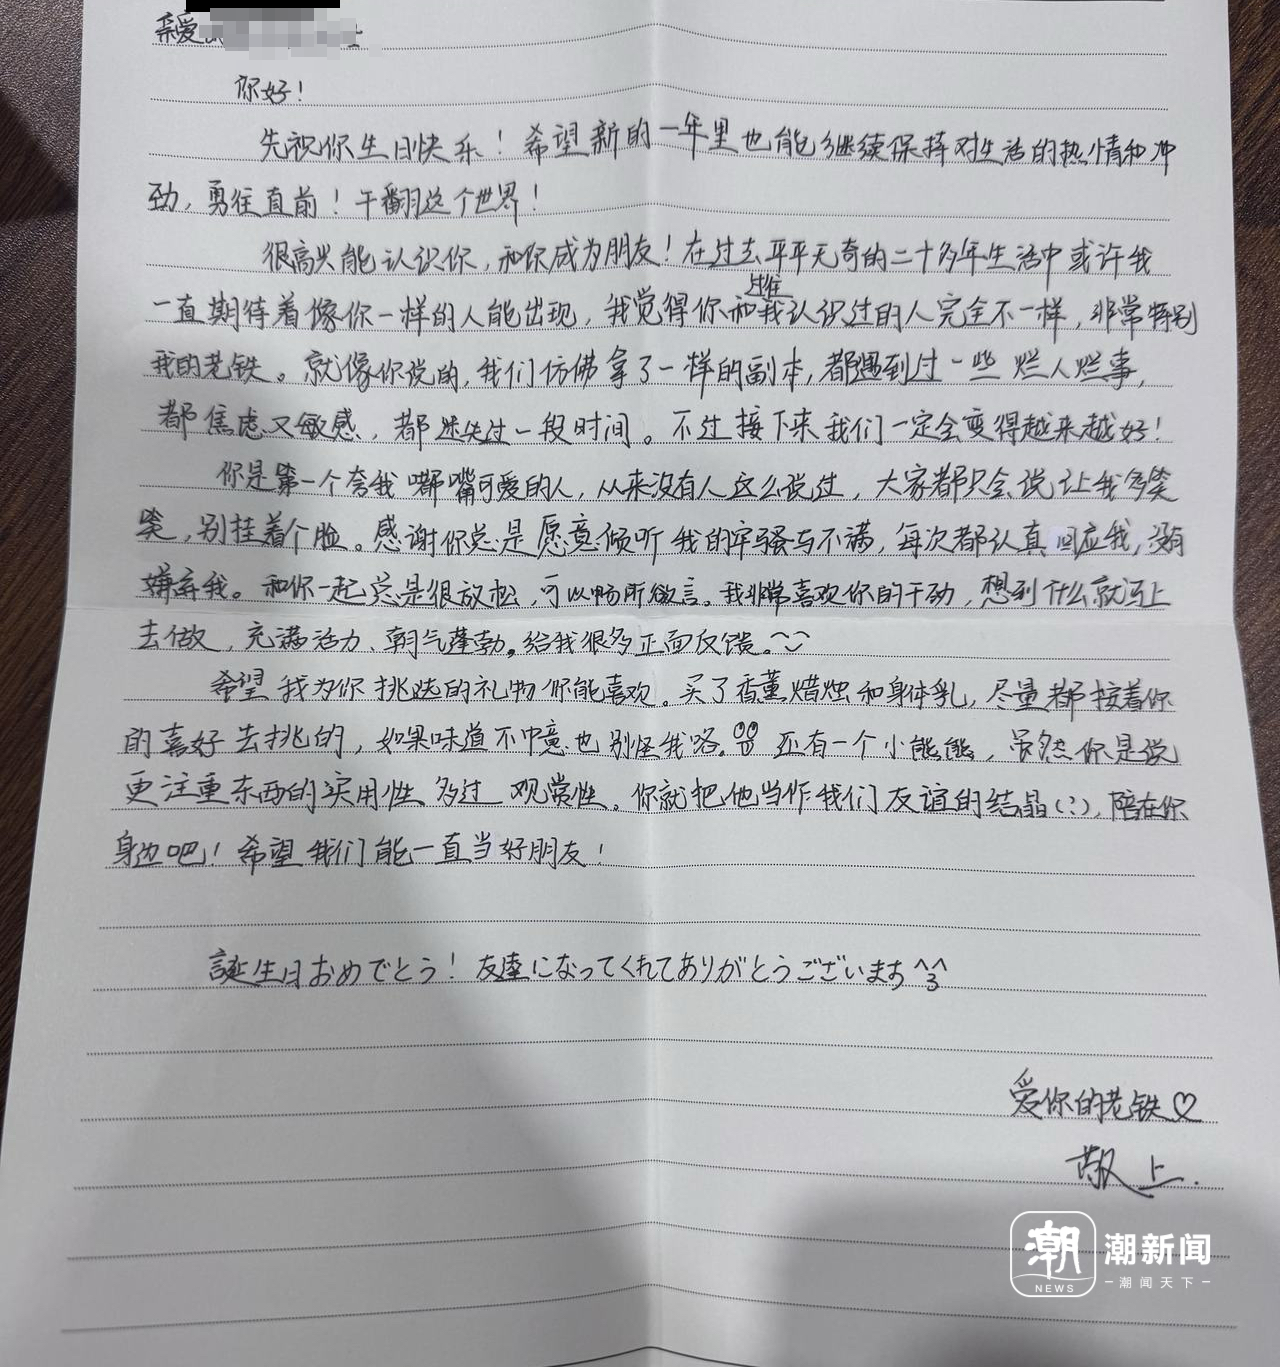 亲爱
你好！
先祝你生日快乐！希望新的一年里也能继续保持对生活的热情和冲
劲，勇往直前！干翻这个世界！
很高兴能认识你，和你成为朋友！在过去平平无奇的二十多年生活中或许我
一直期待着像你一样的人能出现，我觉得你和我过往认识过的人完全不一样，非常特别
我的老铁。就像你说的，我们仿佛拿了一样的副本，都遇到过一些烂人烂事，
都焦虑又敏感，都迷失过一段时间。不过接下来我们一定会变得越来越好！
你是第一个夸我嘟嘴可爱的人，从来没有人这么说过，大家都只会说让我多笑
笑，别挂着个脸。感谢你总是愿意倾听我的牢骚与不满，每次都认真回应我，没有
嫌弃我。和你一起总是很放松，可以畅所欲言。我非常喜欢你的干劲，想到什么就马上
去做，充满活力、朝气蓬勃。给我很多正面反馈。
希望我为你挑选的礼物你能喜欢。买了香薰蜡烛和身体乳，尽量都按着你
的喜好去挑的，如果味道不中意也别怪我咯。还有一个小熊熊，虽然你是说
更注重东西的实用性多过观赏性。你就把他当作我们友谊的结晶(?)，陪在你
身边吧！希望我们能一直当好朋友！
誕生日おめでとう！友達になってくれてありがとうございます^3^
爱你的老铁♡
敬上.
潮 潮新闻
NEWS 潮闻天下